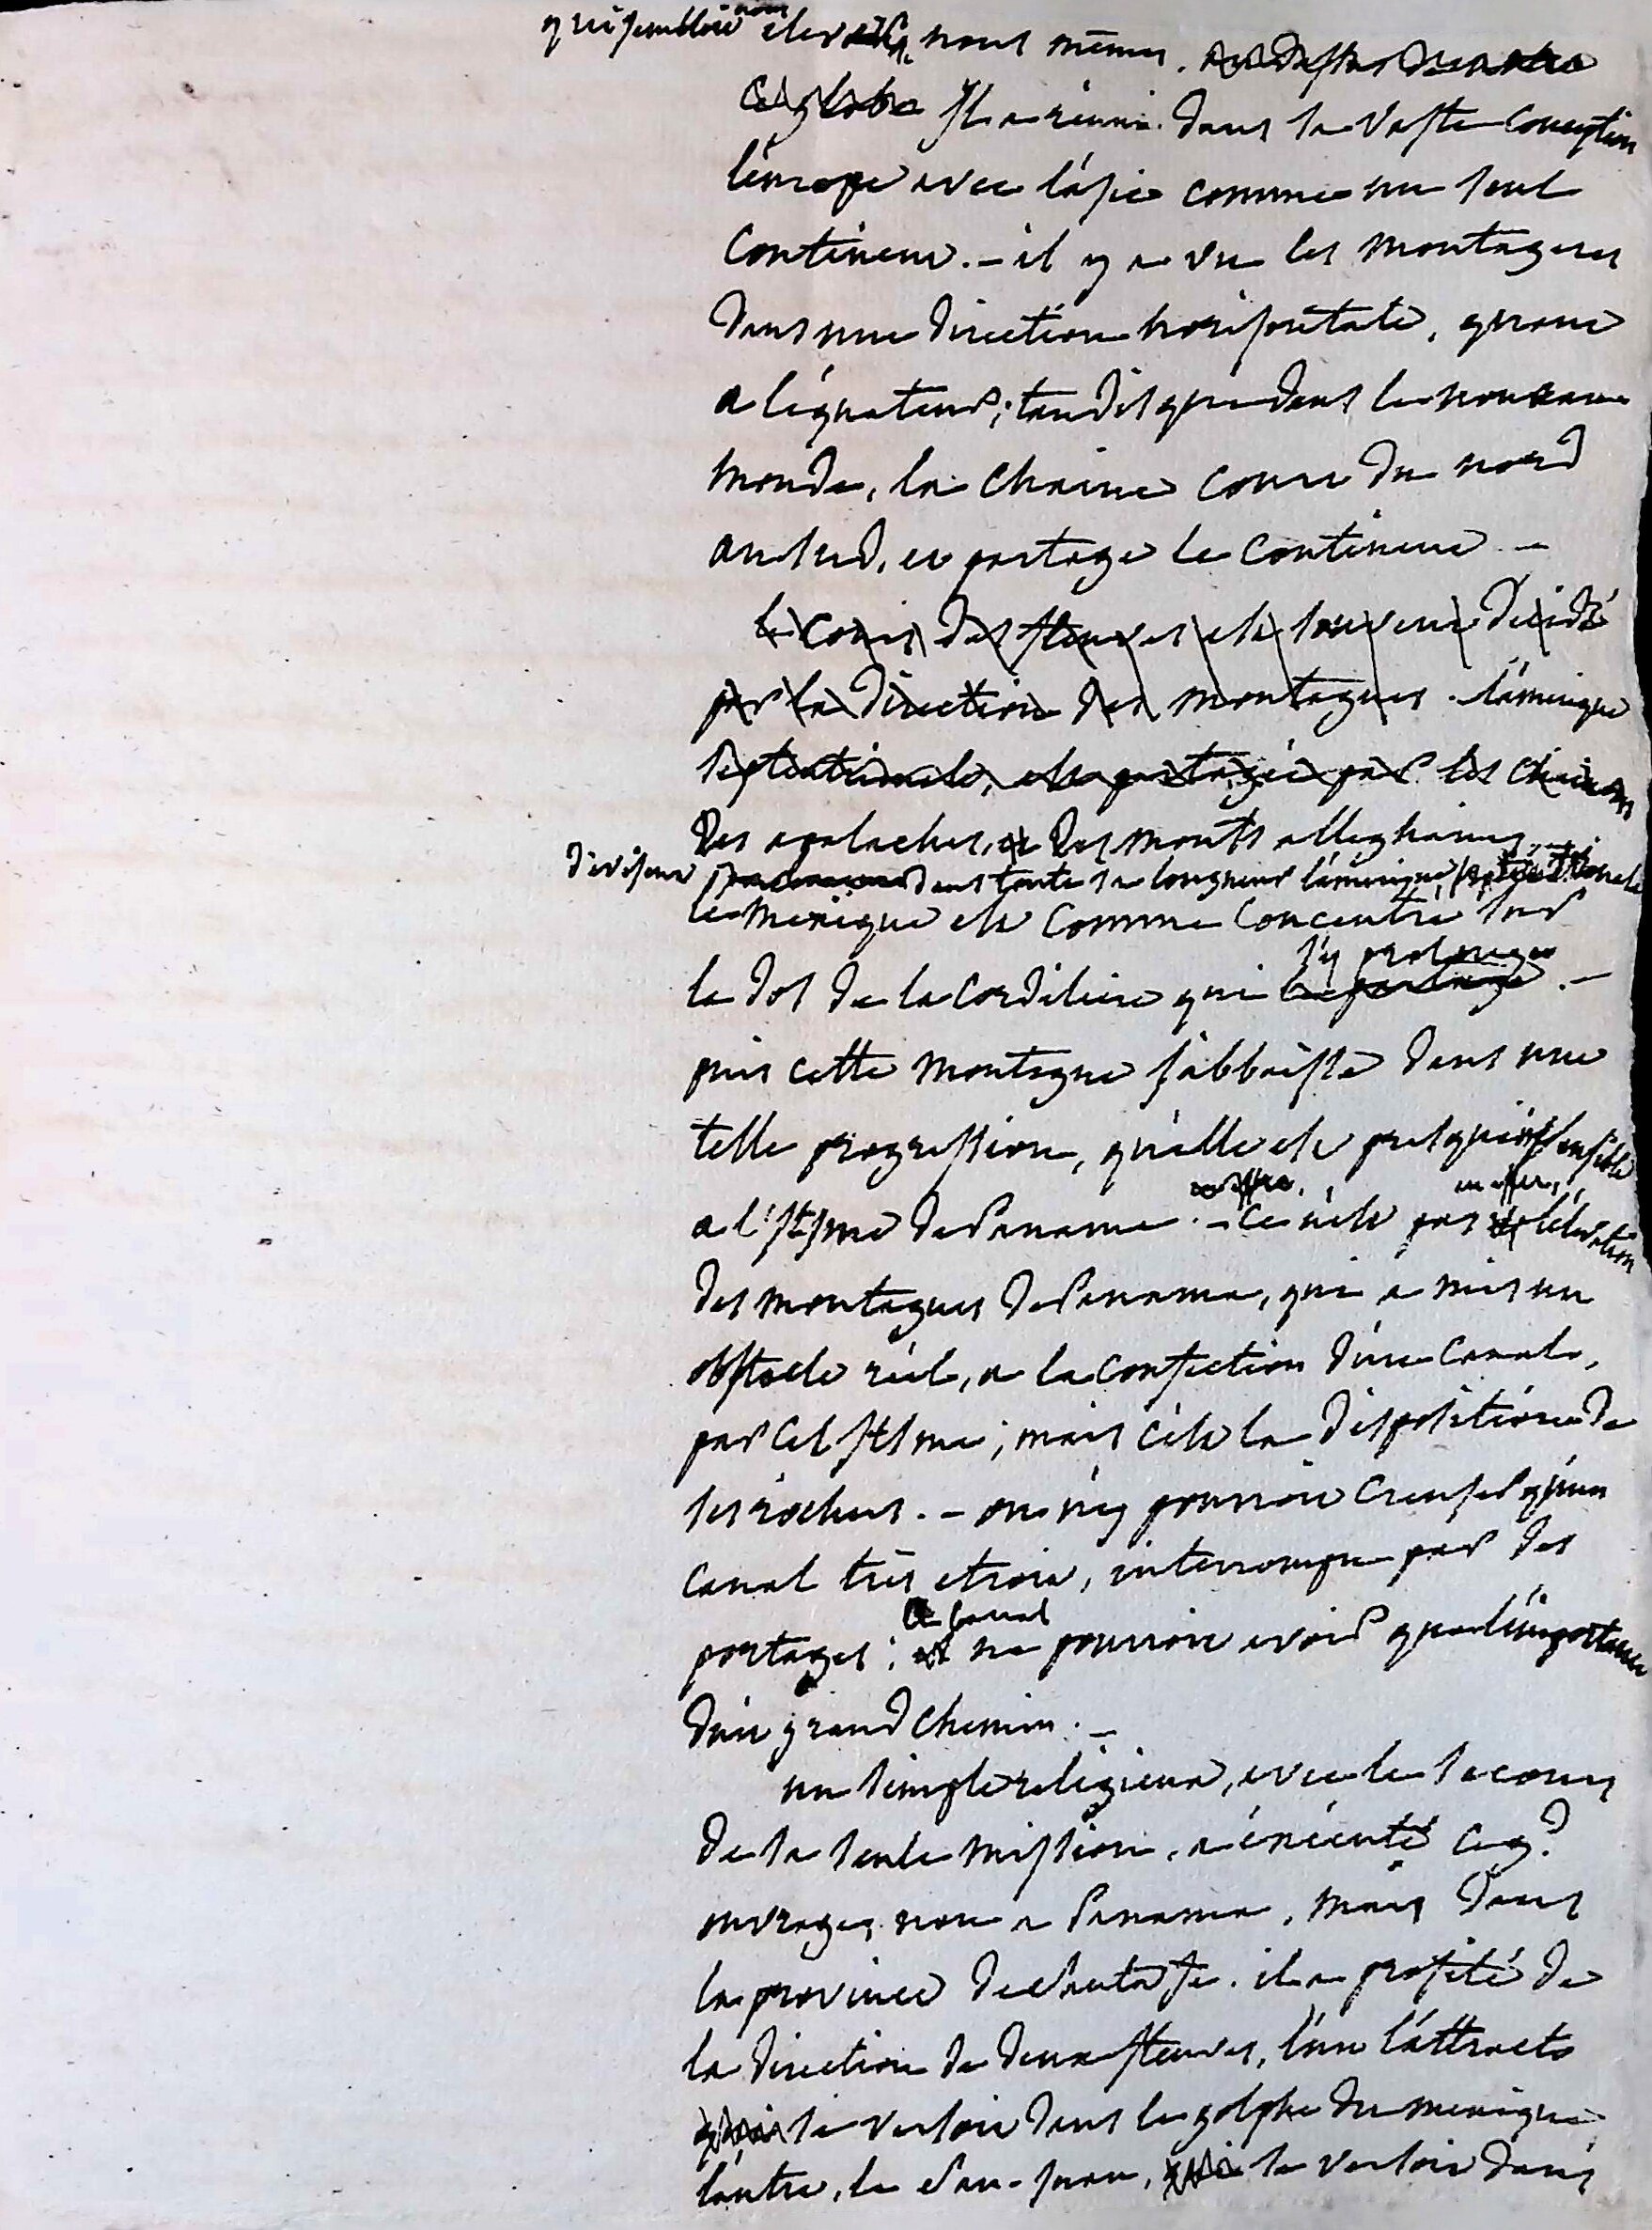 qui sembloit nous elever nous mêmes. au dessus de notre
ce globe Il a réuni dans sa vaste conception
l'europe avec l'asie comme un seul
continent. – il y a vu les montagnes
dans une direction horisontale, quant
a l'équateur; tandis que dans le nouveau
monde, la chaine court du nord
au sud, et partage le continent –
le cours des fleuves est souvent décidé
par la direction des montagnes. l'amérique
septentrionale, est partagée par les chaines
des apalaches, et des monts alleghanis,
divisent dans toute sa longueur l'amérique septentrionale
le mexique est comme concentré sur
le dos de la cordiliere qui s'y prolonge le partage. –
puis cette montagne s'abbaisse dans une
telle progression, qu'elle est presqu'insensible
a l'Istme de Panama. – ce n'est pas en effet, l'élévation
des montagnes de Panama, qui a mis un
obstacle réel, a la confection d'un canal,
par cet Istme; mais c'est la disposition de
ses rochers. – on n'y pourroit creuser qu'un
canal très etroit, interrompu par des
portages; ce canal ne pourroit avoir que l'importance
d'un grand chemin. –
un simple religieux, avec le secours
de sa seule mission, a éxécuté ce gd
ouvrage, non a Panama, mais dans
la province de Santa fe. il a profité de
la direction de deux fleuves, l'un l'attracto
qui se versoit dans le golphe du mexique,
l'autre, le San-Juan, qui se versoit dans